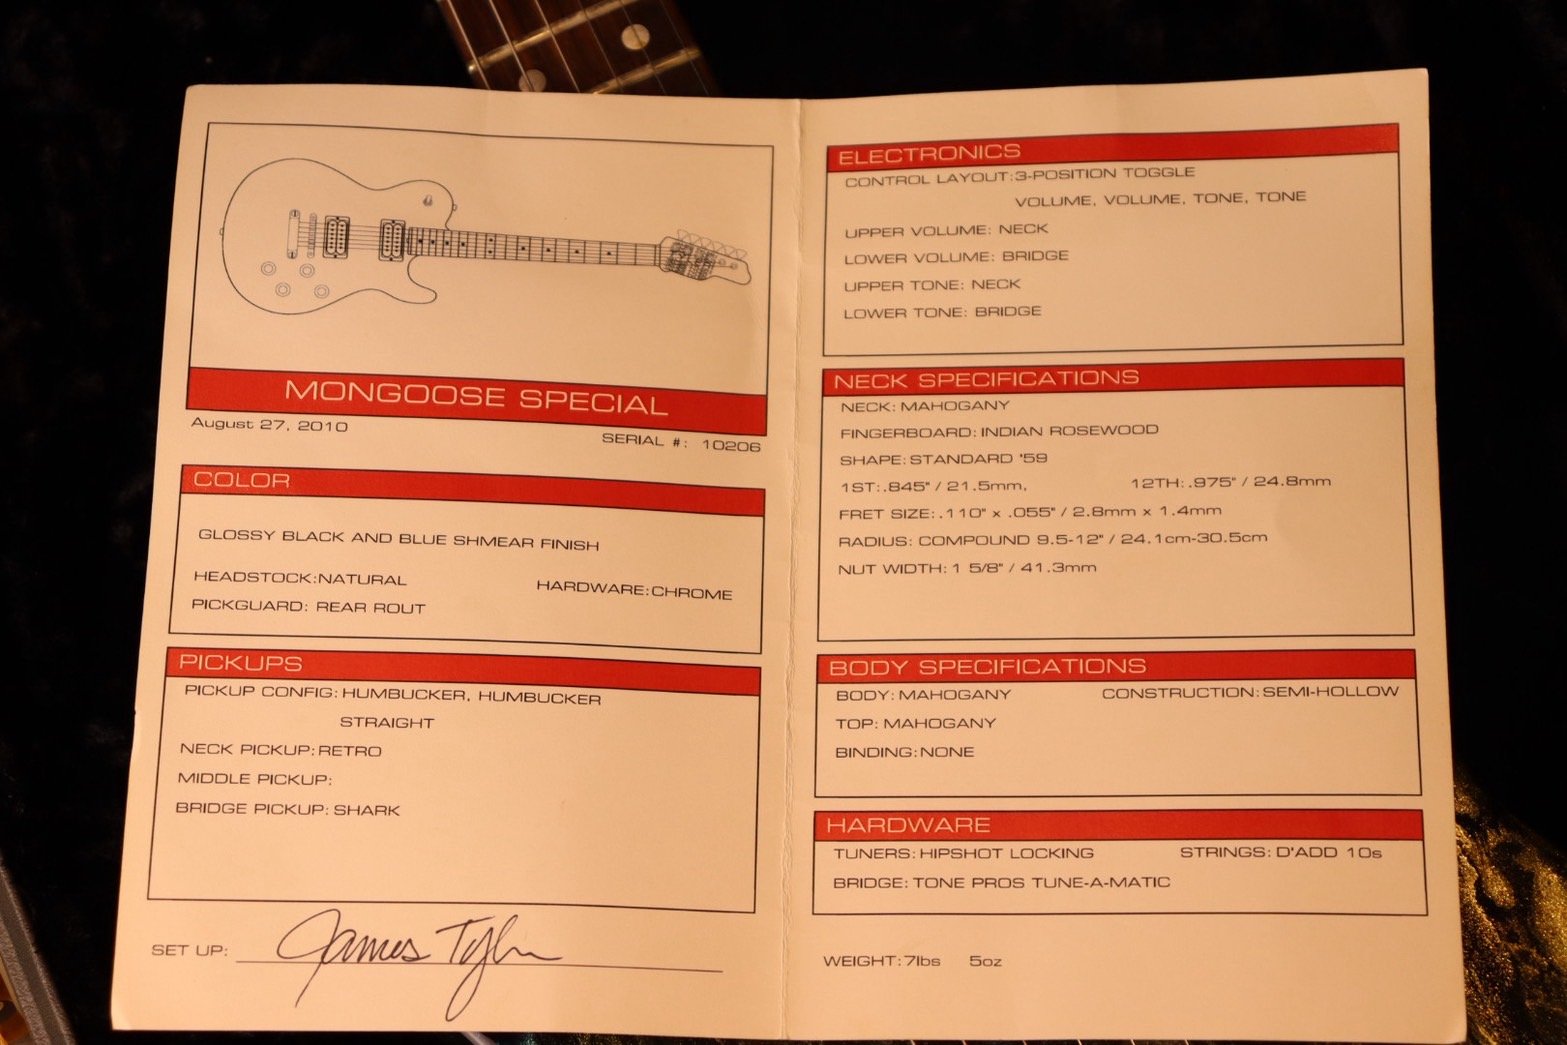 MONGOOSE SPECIAL
August 27, 2010
SERIAL #: 10206
COLOR
GLOSSY BLACK AND BLUE SHMEAR FINISH
HEADSTOCK:NATURAL HARDWARE:CHROME
PICKGUARD: REAR ROUT
PICKUPS
PICKUP CONFIG: HUMBUCKER, HUMBUCKER
STRAIGHT
NECK PICKUP: RETRO
MIDDLE PICKUP:
BRIDGE PICKUP: SHARK
SET UP: James Tyler
ELECTRONICS
CONTROL LAYOUT:3-POSITION TOGGLE
VOLUME, VOLUME, TONE, TONE
UPPER VOLUME: NECK
LOWER VOLUME: BRIDGE
UPPER TONE: NECK
LOWER TONE: BRIDGE
NECK SPECIFICATIONS
NECK: MAHOGANY
FINGERBOARD: INDIAN ROSEWOOD
SHAPE: STANDARD '59
1ST:.845" / 21.5mm, 12TH:.975" / 24.8mm
FRET SIZE: .110" x .055" / 2.8mm x 1.4mm
RADIUS: COMPOUND 9.5-12" / 24.1cm-30.5cm
NUT WIDTH: 1 5/8" / 41.3mm
BODY SPECIFICATIONS
BODY: MAHOGANY CONSTRUCTION: SEMI-HOLLOW
TOP: MAHOGANY
BINDING: NONE
HARDWARE
TUNERS: HIPSHOT LOCKING STRINGS: D'ADD 10s
BRIDGE: TONE PROS TUNE-A-MATIC
WEIGHT: 7lbs 5oz